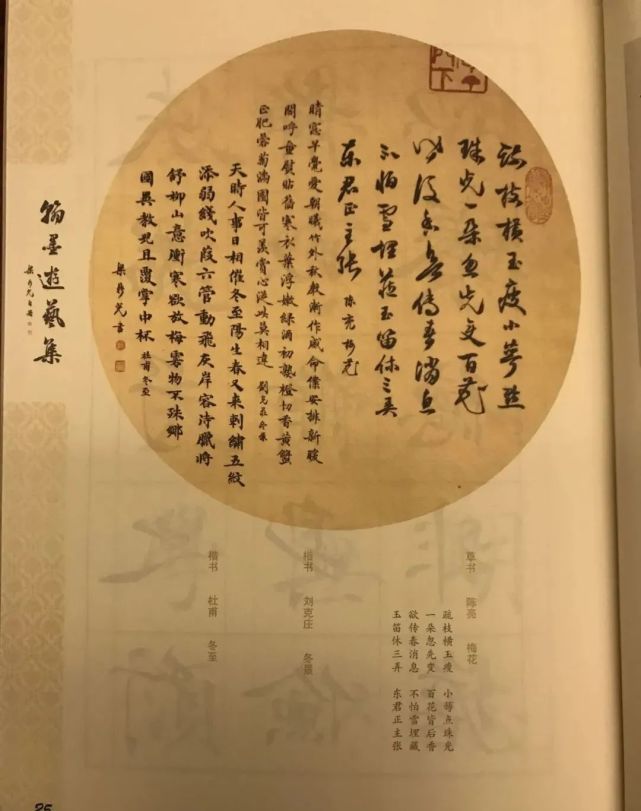 疏枝横玉瘦小萼點
珠光一朵忽先变百花
皆後香欲傳春消息
不怕雪埋藏玉笛休三弄
东君正主张 陈亮梅花
晴窓早覺愛朝曦竹外秋聲漸作威命僕安排新暖
閣呼童熨貼舊寒衣葉浮嫩綠酒初熟橙切香黄蟹
正肥蓉菊滿園皆可羡賞心從此莫相違 劉克莊冬景
天時人事日相催冬至陽生春又来刺繡五紋
添弱綫吹葭六管動飛灰岸容待臘將
舒柳山意衝寒欲放梅雲物不殊鄉
國異教兒且覆掌中杯 杜甫冬至
翰墨遊藝集
草书 陈亮 梅花
疏枝横玉瘦 小萼点珠光
一朵忽先变 百花皆后香
欲传春消息 不怕雪埋藏
玉笛休三弄 东君正主张
楷书 刘克庄 冬景
楷书 杜甫 冬至
25